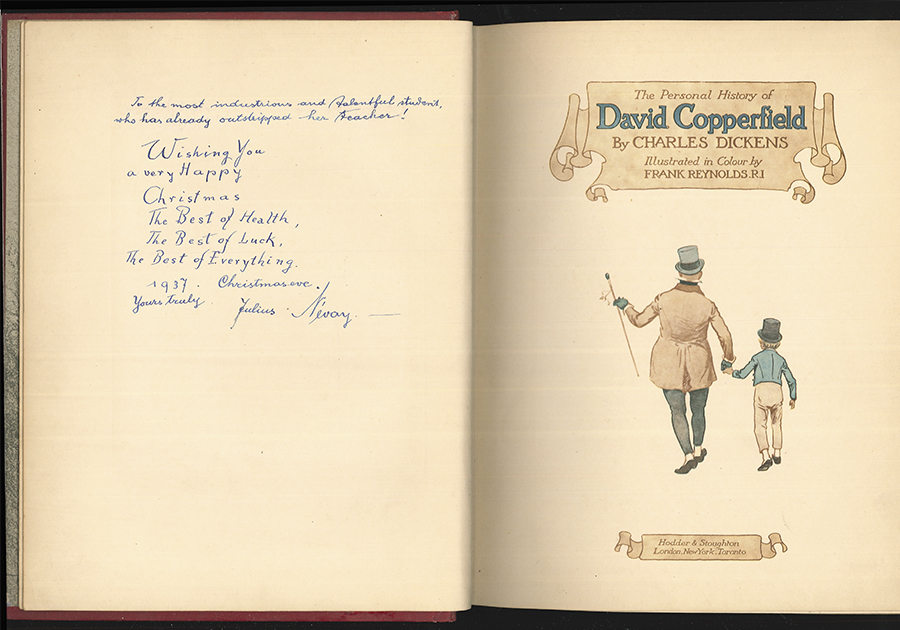 To the most industrious and talentful student,
who has already outstripped her teacher!
Wishing You
a very Happy
Christmas
The Best of Health,
The Best of Luck,
The Best of Everything.
1937. Christmaseve.
Yours truly
Julius Névay.
The Personal History of
David Copperfield
By CHARLES DICKENS
Illustrated in Colour by
FRANK REYNOLDS.R.I
Hodder & Stoughton
London, New York, Toronto